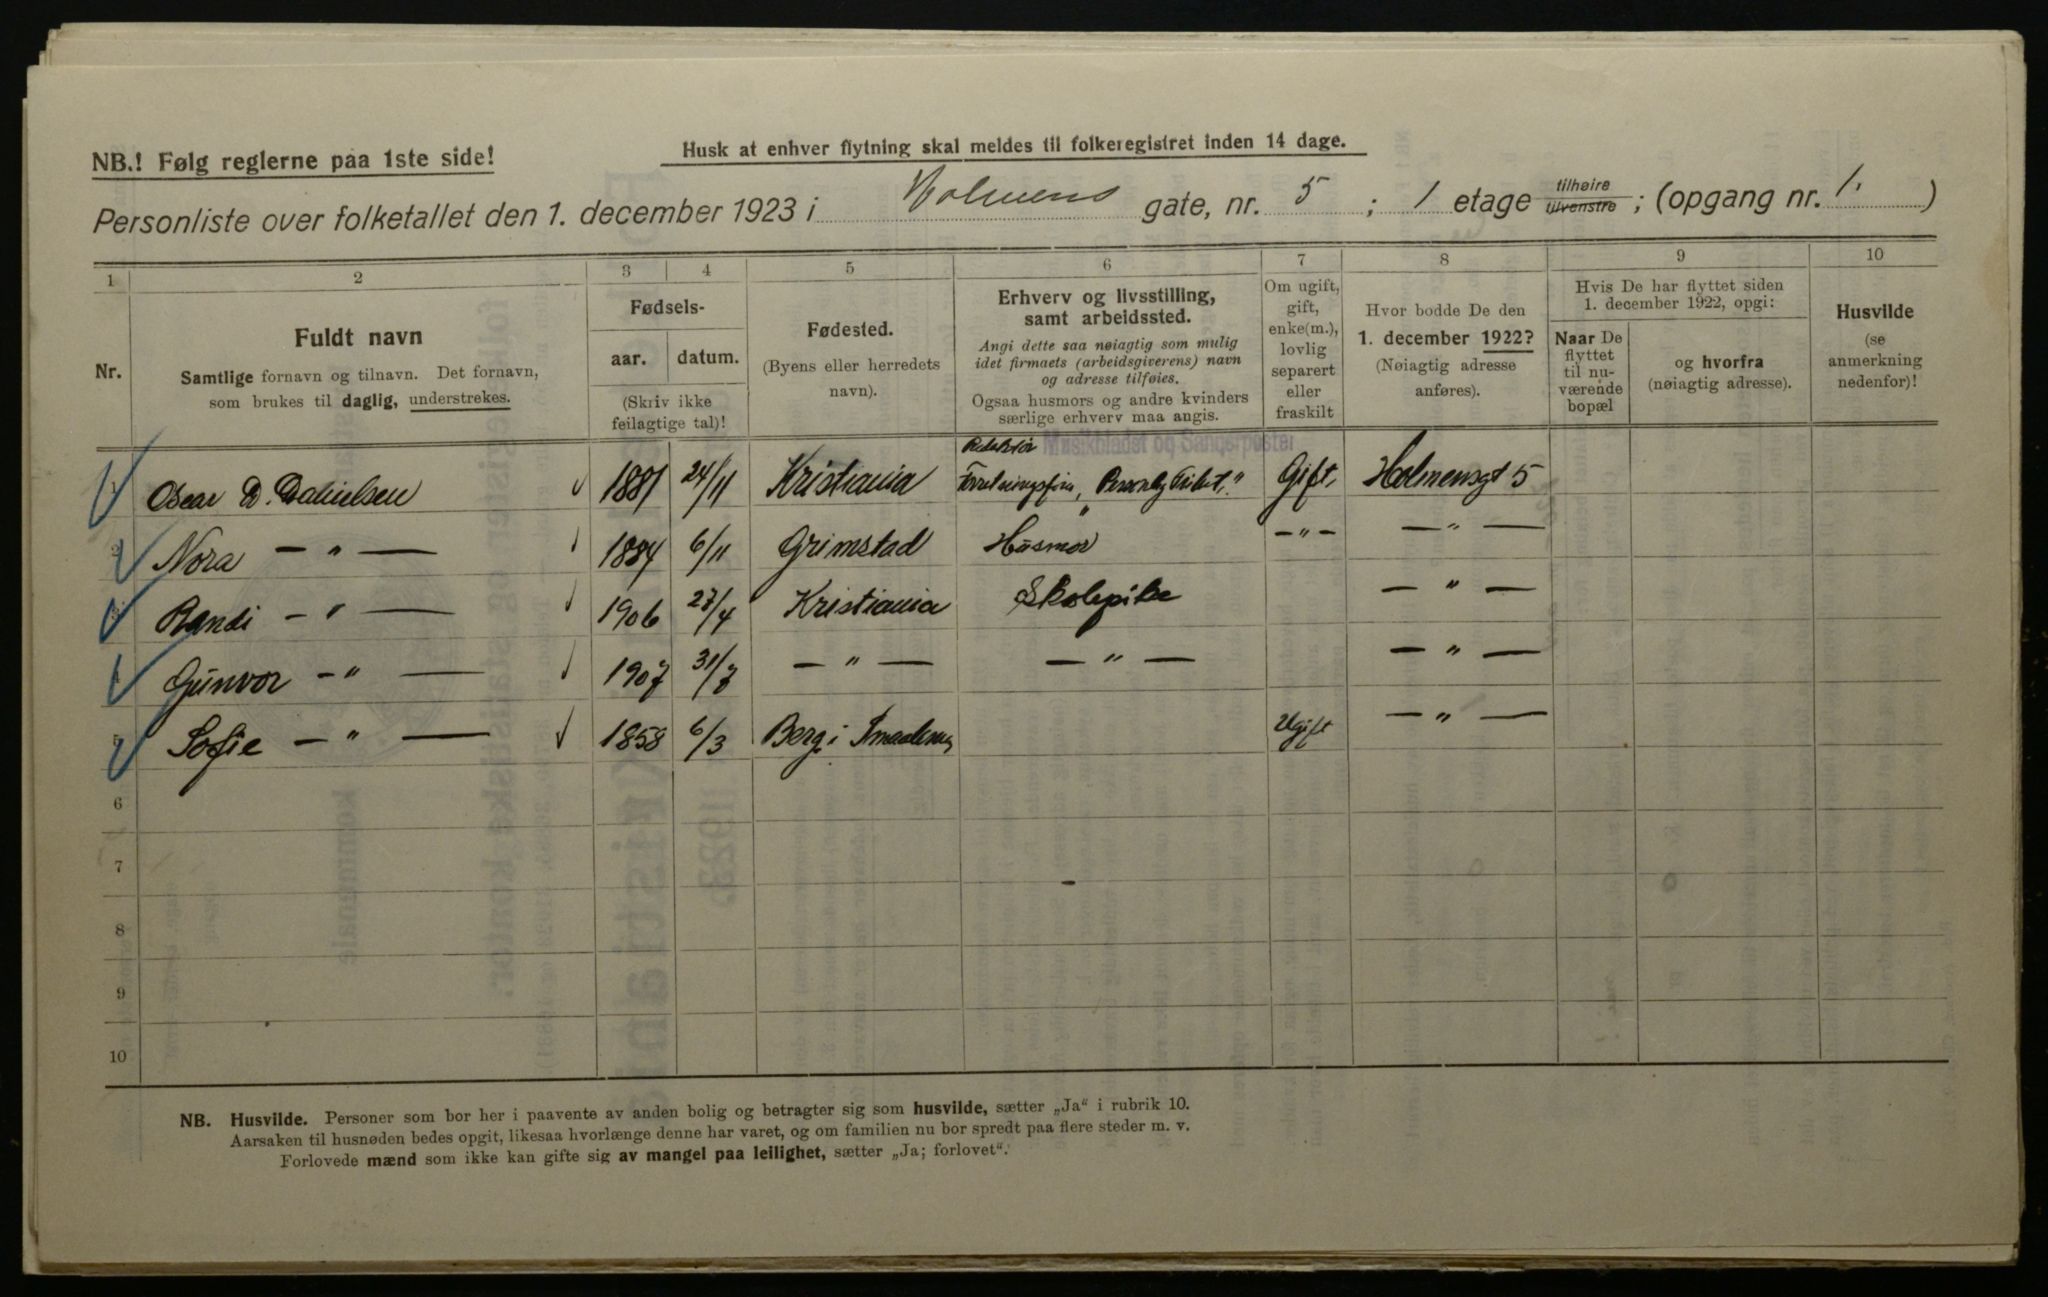 NB.! Følg reglerne paa 1ste side!
Husk at enhver flytning skal meldes til folkeregistret inden 14 dage.
Personliste over folketallet den 1. december 1923 i Holmens gate, nr. 5 ; 1 etage tilhøire tilvenstre ; (opgang nr. 1. )
1 2 3 4 5 6 7 8 9 10
Nr.
Fuldt navn
Samtlige fornavn og tilnavn. Det fornavn,
som brukes til daglig, understrekes.
Fødsels-
aar. datum.
(Skriv ikke
feilagtige tal)!
Fødested.
(Byens eller herredets
navn).
Erhverv og livsstilling,
samt arbeidssted.
Angi dette saa nøiagtig som mulig
idet firmaets (arbeidsgiverens) navn
og adresse tilføies.
Ogsaa husmors og andre kvinders
særlige erhverv maa angis.
Om ugift,
gift,
enke(m.),
lovlig
separert
eller
fraskilt
Hvor bodde De den
1. december 1922?
(Nøiagtig adresse
anføres).
Hvis De har flyttet siden
1. december 1922, opgi:
Naar De
flyttet
til nu-
værende
bopæl
og hvorfra
(nøiagtig adresse).
Husvilde
(se
anmerkning
nedenfor)!
Redaktør Musikbladet og Sangerposten
1 Oscar D. Danielsen 1881 24/11 Kristiania Gift. Holmensgt 5
2 Nora — " — 1884 6/11 Grimstad Husmor — " — — " —
3 Randi — " — 1906 27/4 Kristiania Skolepike — " —
4 Gunvor — " — 1907 31/7 — " — — " — — " —
5 Sofie — " — 1858 6/3 Berg i Smaalenene Ugift — " —
6
7
8
9
10
NB. Husvilde. Personer som bor her i paavente av anden bolig og betragter sig som husvilde, sætter „Ja" i rubrik 10.
Aarsaken til husnøden bedes opgit, likesaa hvorlænge denne har varet, og om familien nu bor spredt paa flere steder m. v.
Forlovede mænd som ikke kan gifte sig av mangel paa leilighet, sætter „Ja; forlovet".